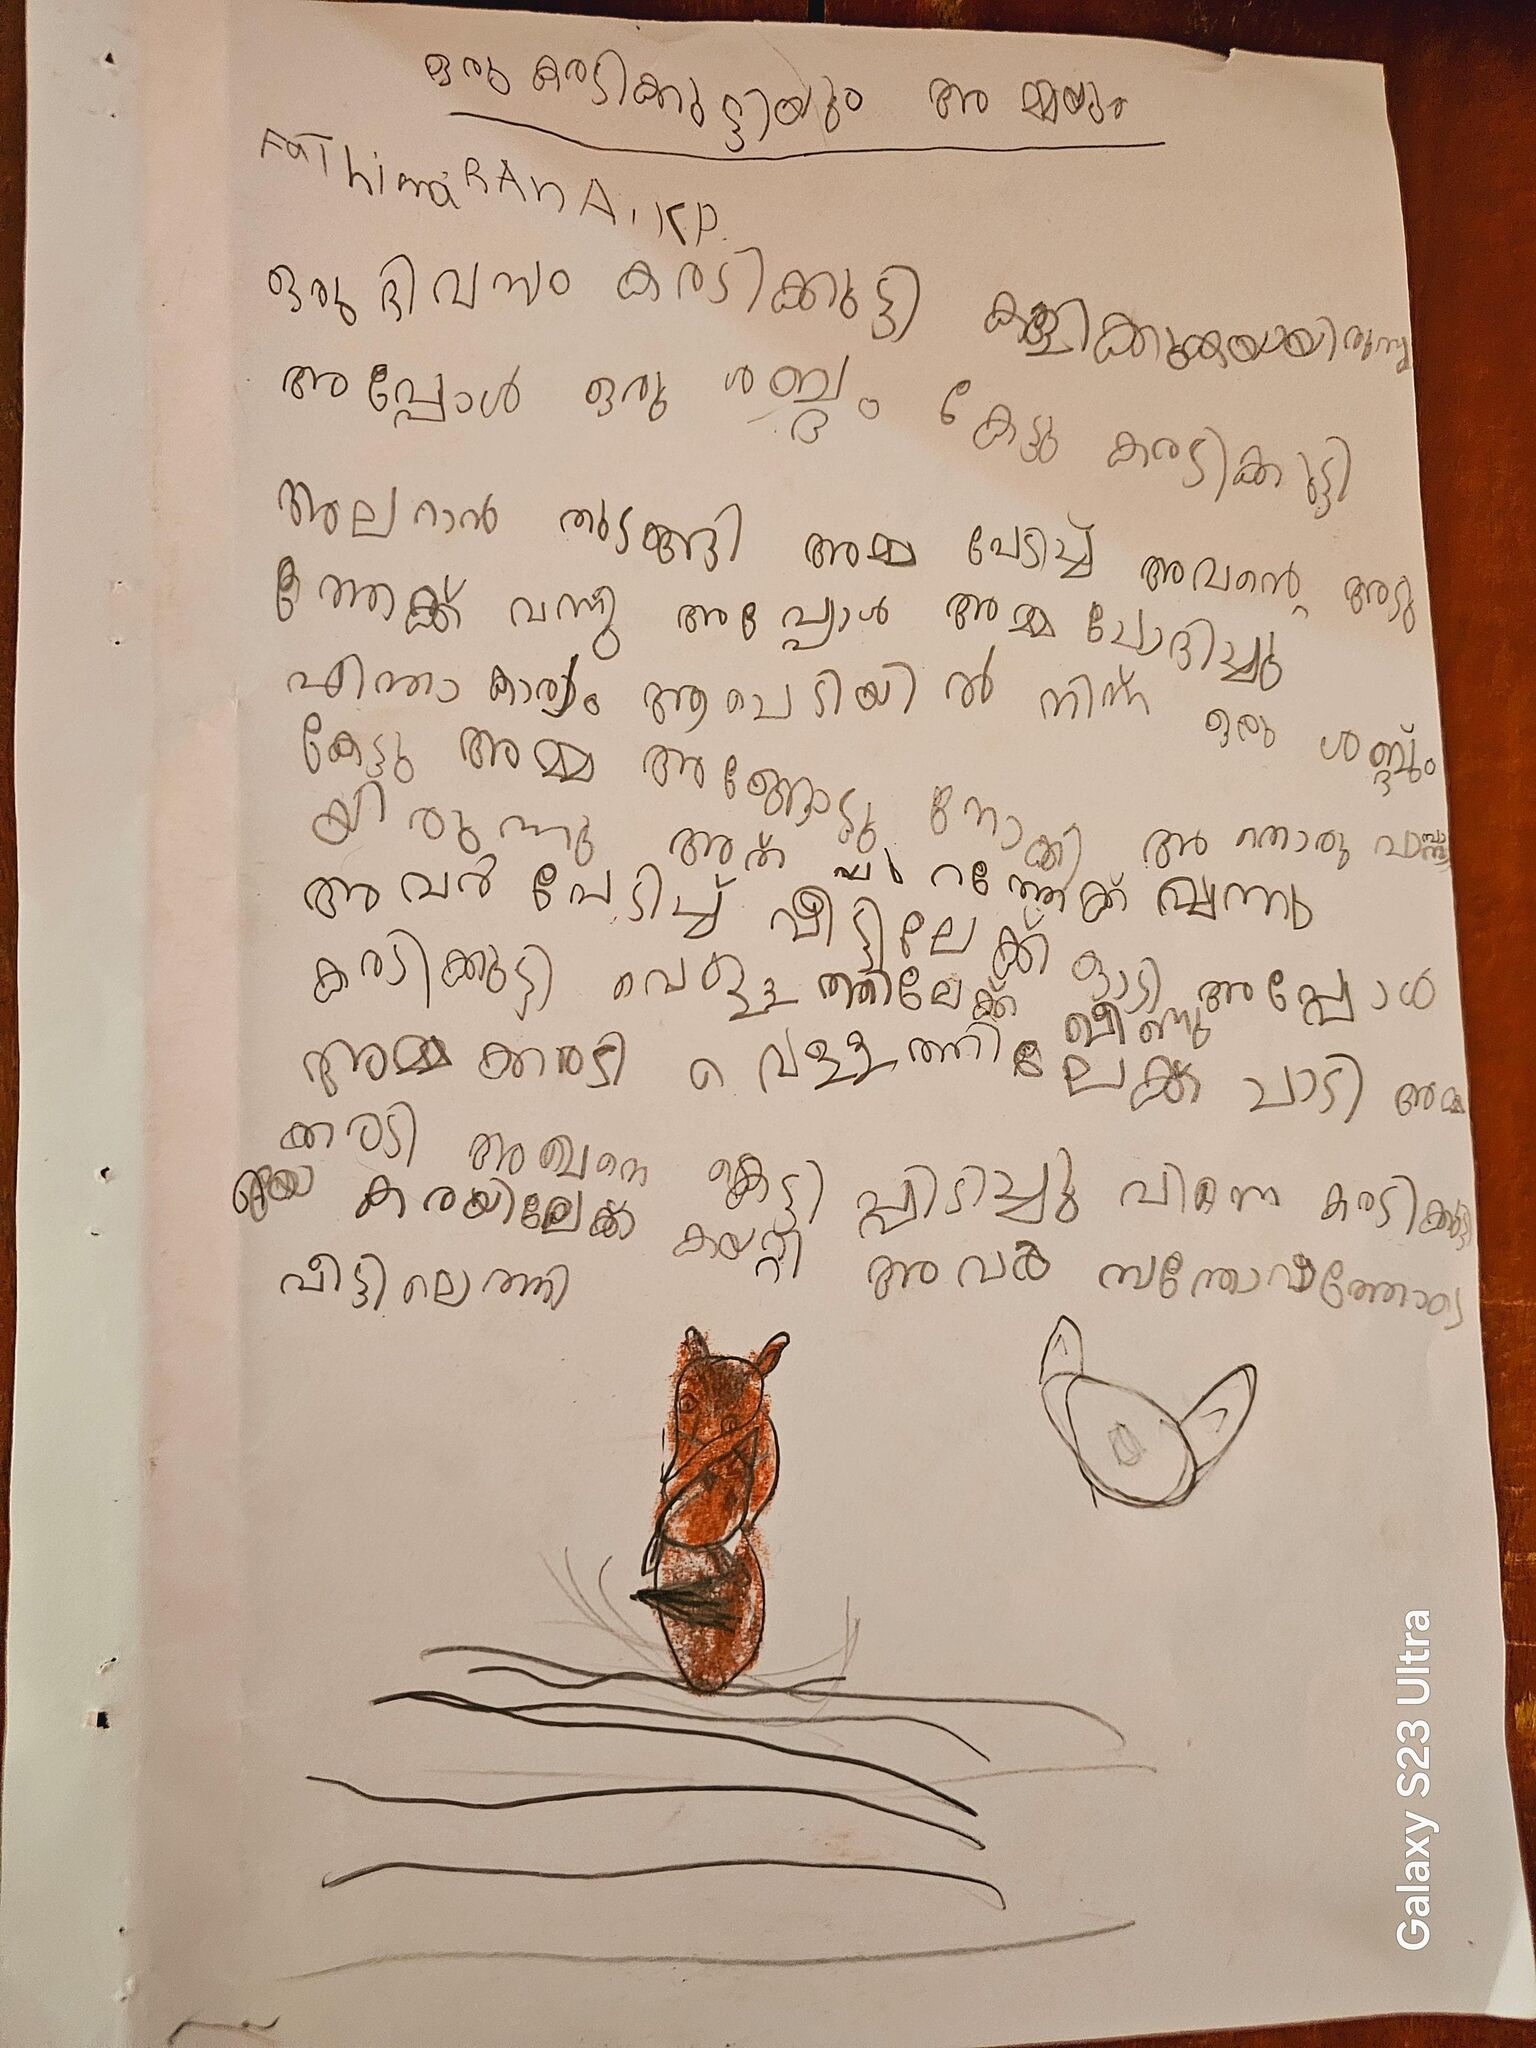 ഒരു കരടിക്കുട്ടിയും അമ്മയും
FaThima RAnA. KP.
ഒരു ദിവസം കരടിക്കുട്ടി കളിക്കുകയായിരുന്നു
അപ്പോൾ ഒരു ശബ്ദം കേട്ടു കരടിക്കുട്ടി
അലറാൻ തുടങ്ങി അമ്മ പേടിച്ച് അവന്റെ അടു
ത്തേക്ക് വന്നു അപ്പോൾ അമ്മ ചോദിച്ചു
എന്താ കാര്യം ആ ചെടിയിൽ നിന്ന് ഒരു ശബ്ദം
കേട്ടു അമ്മ അങ്ങോട്ടു നോക്കി അതൊരു പാമ്പാ
യിരുന്നു അത് പുറത്തേക്ക് വന്നു
അവർ പേടിച്ച് വീട്ടിലേക്ക് ഓടി അപ്പോൾ
കരടിക്കുട്ടി വെള്ളത്തിലേക്ക് വീണു
അമ്മക്കരടി വെള്ളത്തിലേക്ക് ചാടി അമ്മ
ക്കരടി അവനെ കെട്ടി പ്പിടിച്ചു പിന്നെ കരടിക്കുട്ടി
യെ കരയിലേക്ക് കയറ്റി അവർ സന്തോഷത്തോടെ
വീട്ടിലെത്തി
Galaxy S23 Ultra